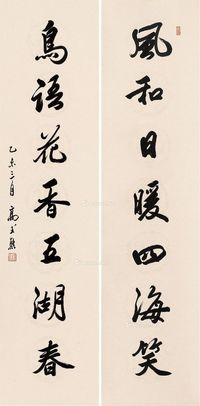 風和日暖四海笑
鳥語花香五湖春
乙未三月